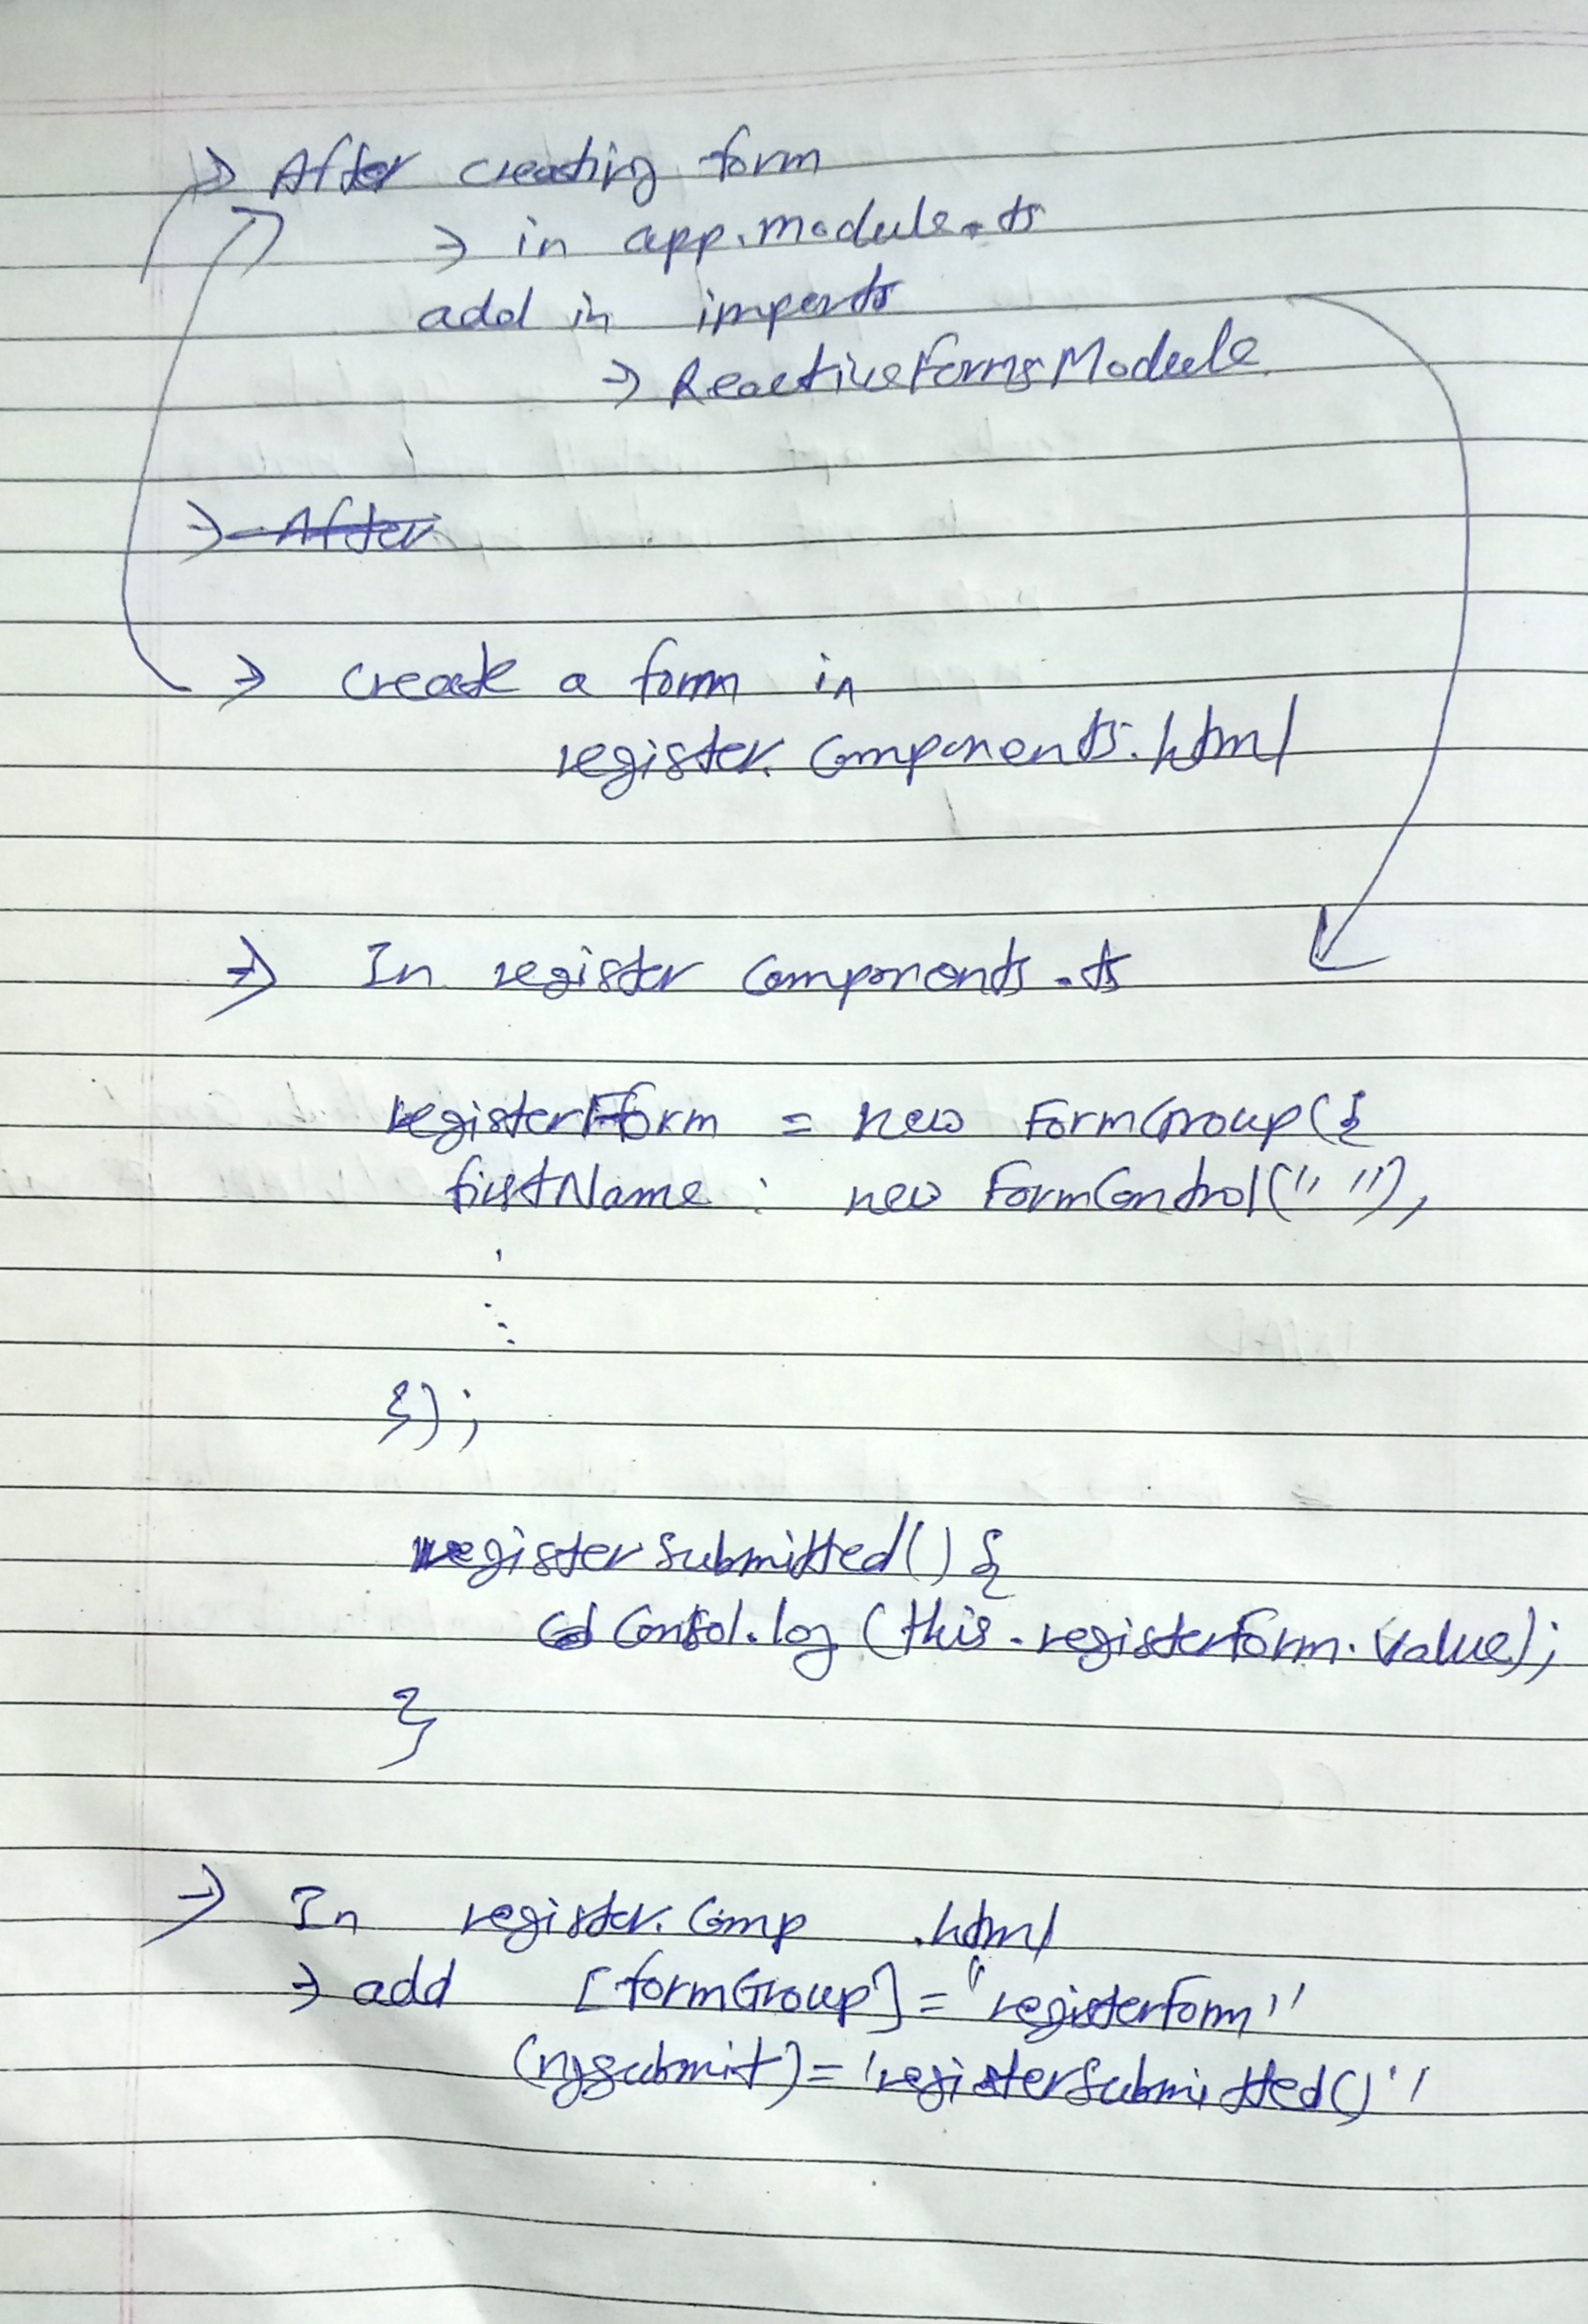 ⇒ After creating form
⇒ in app.module.ts
add in imports
⇒ ReactiveFormsModule
⇒ After
⇒ create a form in
register.Components.html
⇒ In register Components.ts
registerForm = new FormGroup({
firstName : new FormControl(" "),
:
:
});
registerSubmitted() {
Consol.log (this.registerForm.value);
}
⇒ In register.Comp .html
⇒ add [formGroup]="registerForm"
(ngsubmit)='registerSubmitted()''